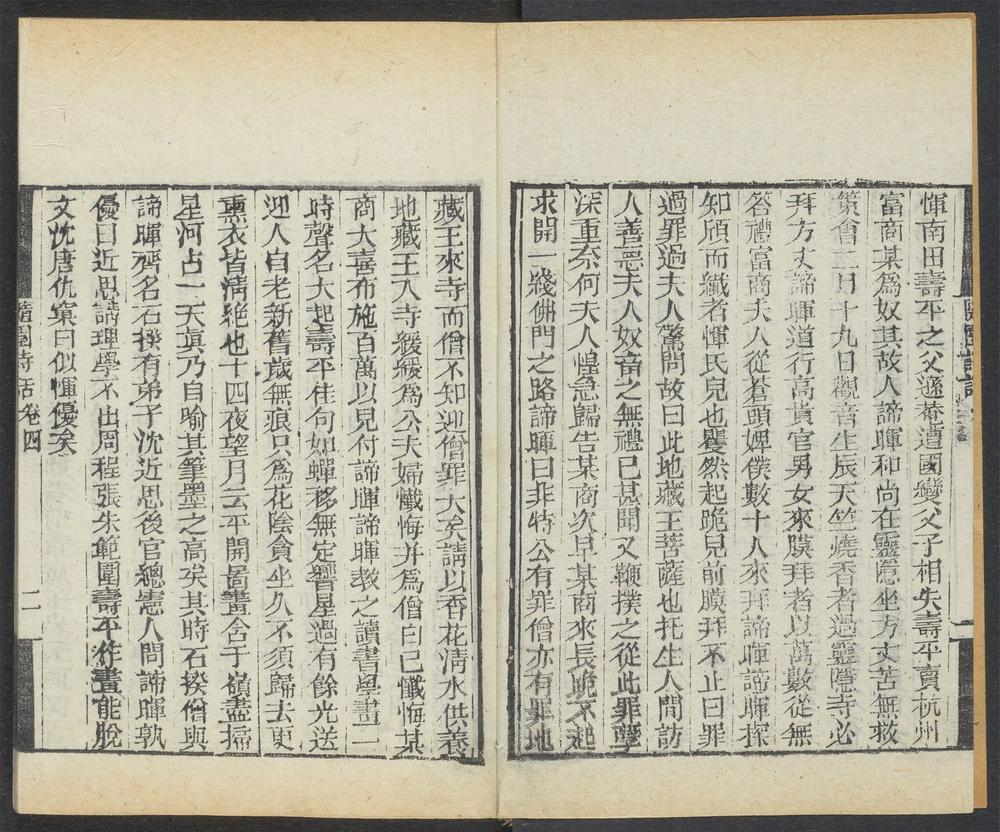 惲南田壽平之父遜菴遭國變父子相失壽平賣杭州
富商某爲奴其故人諦暉和尚在靈隱坐方丈苦無救
策會二月十九日觀音生辰天竺燒香者過靈隱寺必
拜方丈諦暉道行高貴官男女來膜拜者以萬數從無
答禮富商夫人從蒼頭婢僕數十人來拜諦暉諦暉探
知頎而纖者惲氏兒也矍然起跪兒前膜拜不止曰罪
過罪過夫人驚問故曰此地藏王菩薩也托生人間訪
人善惡夫人奴畜之無禮已甚聞又鞭撲之從此罪孽
深重奈何夫人惶急歸告某商次早某商來長跪不起
求開一綫佛門之路諦暉曰非特公有罪僧亦有罪地
藏王來寺而僧不知迎僧罪大矣請以香花清水供養
地藏王入寺緩緩爲公夫婦懺悔并爲僧自己懺悔某
商大喜布施百萬以兒付諦暉諦暉教之讀書學畫一
時聲名大起壽平佳句如蟬移無定響星過有餘光送
迎人自老新舊歲無痕只爲花陰貪坐久不須歸去更
熏衣皆清絶也十四夜望月云平開圖畫含千嶺盡掃
星河占一天眞乃自喻其筆墨之高矣其時石揆僧與
諦暉齊名石揆有弟子沈近思後官總憲人問諦暉孰
優曰近思講理學不出周程張朱範圍壽平作畫能脫
文沈唐仇窠臼似惲優矣
隨園詩話卷四
二